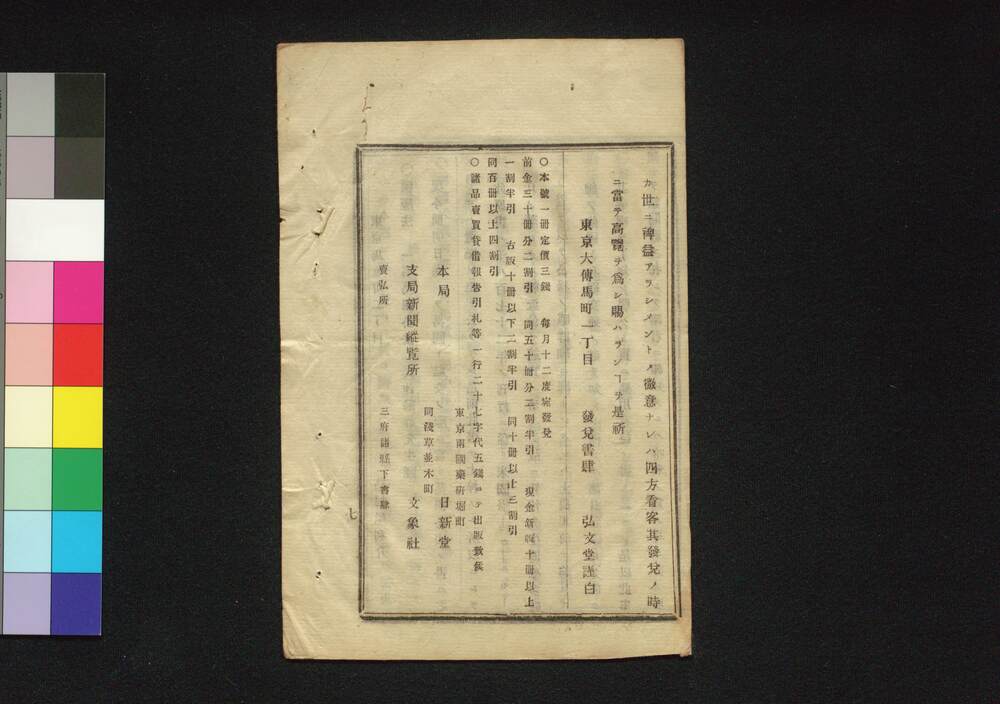 カ世ニ裨益アラシメントノ微意ナレハ四方看客其發兌ノ時
ニ當テ高覽ヲ爲シ賜ハランヿヲ是祈
東京大傳馬町一丁目　發兌書肆　弘文堂謹白
○本號一冊定價三錢　每月十二度宛發兌
前金三十冊分二割引　同五十冊分二割半引　現金新版十冊以上
一割半引　古版十冊以下二割半引　同十冊以上三割引
同百冊以上四割引
○諸品賣買貸借報告引札等一行二十七字代五錢ニテ出版致候
東京兩國藥硏堀町
本局　日新堂
同淺草並木町
支局新聞縱覽所　文象社
賣弘所　三府諸縣下書肆
七